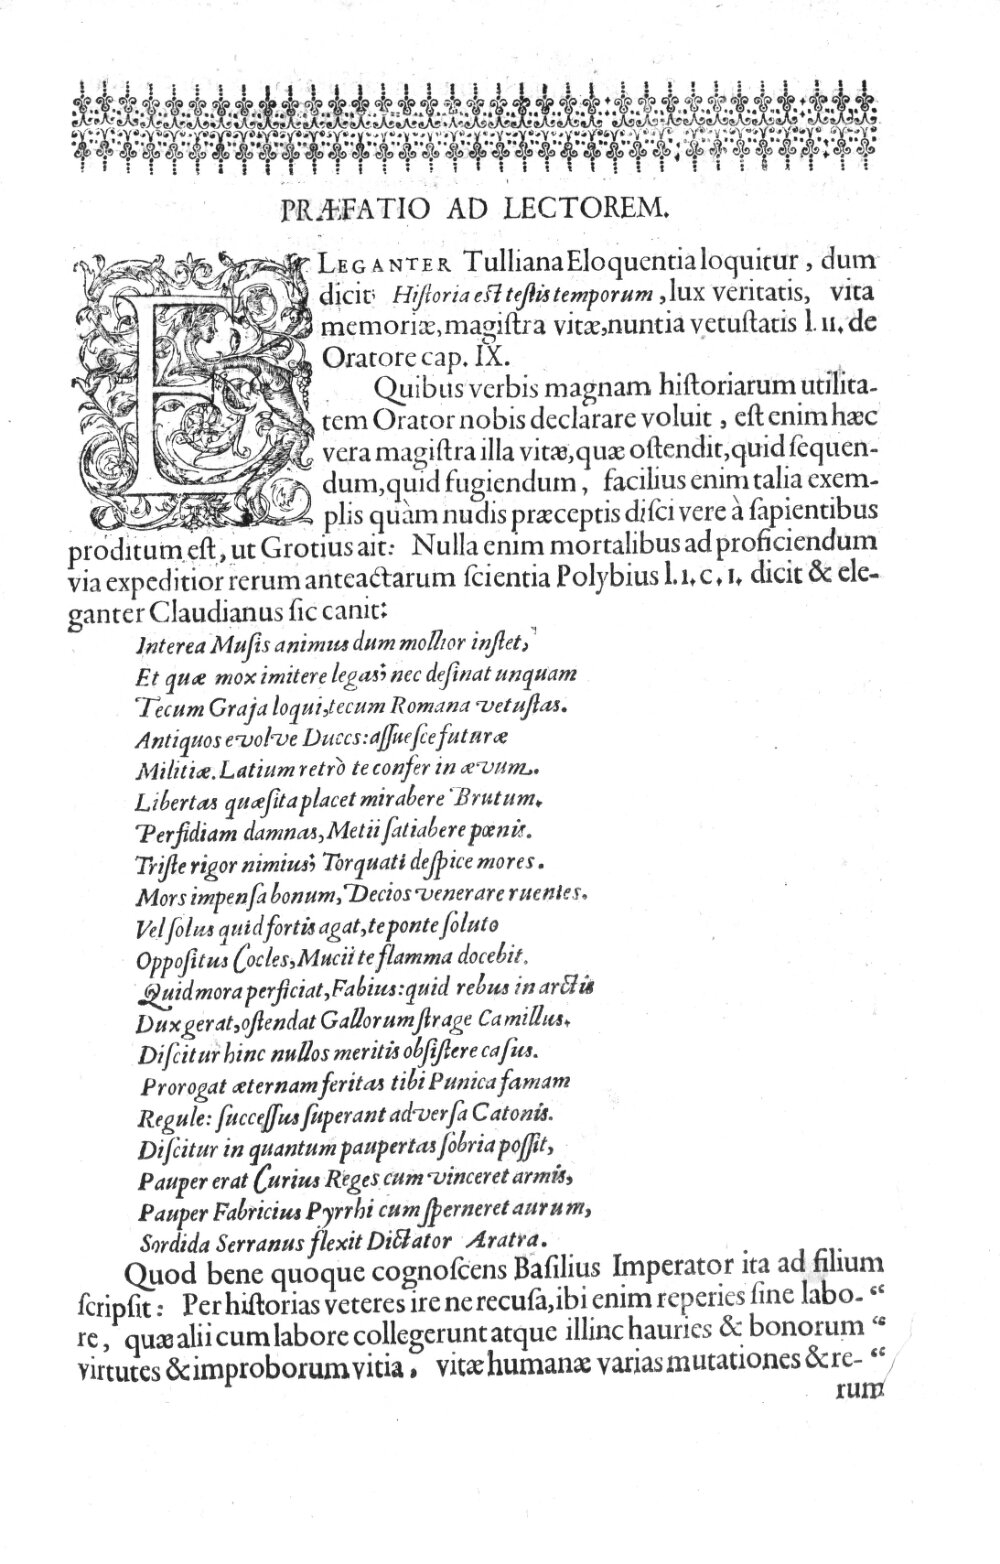 PRÆFATIO AD LECTOREM.
ELEGANTER Tulliana Eloquentia loquitur, dum
dicit: Hiſtoria eſt teſtis temporum, lux veritatis, vita
memoriæ, magiſtra vitæ, nuntia vetuſtatis l. 11. de
Oratore cap. IX.
Quibus verbis magnam hiſtoriarum utilita-
tem Orator nobis declarare voluit, eſt enim hæc
vera magiſtra illa vitæ, quæ oſtendit, quid ſequen-
dum, quid fugiendum, facilius enim talia exem-
plis quàm nudis præceptis diſci vere à ſapientibus
proditum eſt, ut Grotius ait: Nulla enim mortalibus ad proficiendum
via expeditior rerum anteactarum ſcientia Polybius l. 1. c. 1. dicit & ele-
ganter Claudianus ſic canit:
Interea Muſis animus dum mollior inſtet,
Et quæ mox imitere legas; nec deſinat unquam
Tecum Graja loqui, tecum Romana vetuſtas.
Antiquos evolve Duces: aſſueſce futuræ
Militiæ. Latium retrò te confer in ævum.
Libertas quæſita placet mirabere Brutum.
Perfidiam damnas, Metii ſatiabere pœnis.
Triſte rigor nimius; Torquati deſpice mores.
Mors impenſa bonum, Decios venerare ruentes.
Vel ſolus quid fortis agat, te ponte ſoluto
Oppoſitus Cocles, Mucii te flamma docebit.
Quid mora perficiat, Fabius: quid rebus in arctis
Dux gerat, oſtendat Gallorum ſtrage Camillus.
Diſcitur hinc nullos meritis obſiſtere caſus.
Prorogat æternam feritas tibi Punica famam
Regule: ſucceſſus ſuperant adverſa Catonis.
Diſcitur in quantum paupertas ſobria poſſit,
Pauper erat Curius Reges cum vinceret armis,
Pauper Fabricius Pyrrhi cum ſperneret aurum,
Sordida Serranus flexit Dictator Aratra.
Quod bene quoque cognoſcens Baſilius Imperator ita ad filium
ſcripſit: Per hiſtorias veteres ire ne recuſa, ibi enim reperies ſine labo- “
re, quæ alii cum labore collegerunt atque illinc hauries & bonorum “
virtutes & improborum vitia, vitæ humanæ varias mutationes & re- “
rum